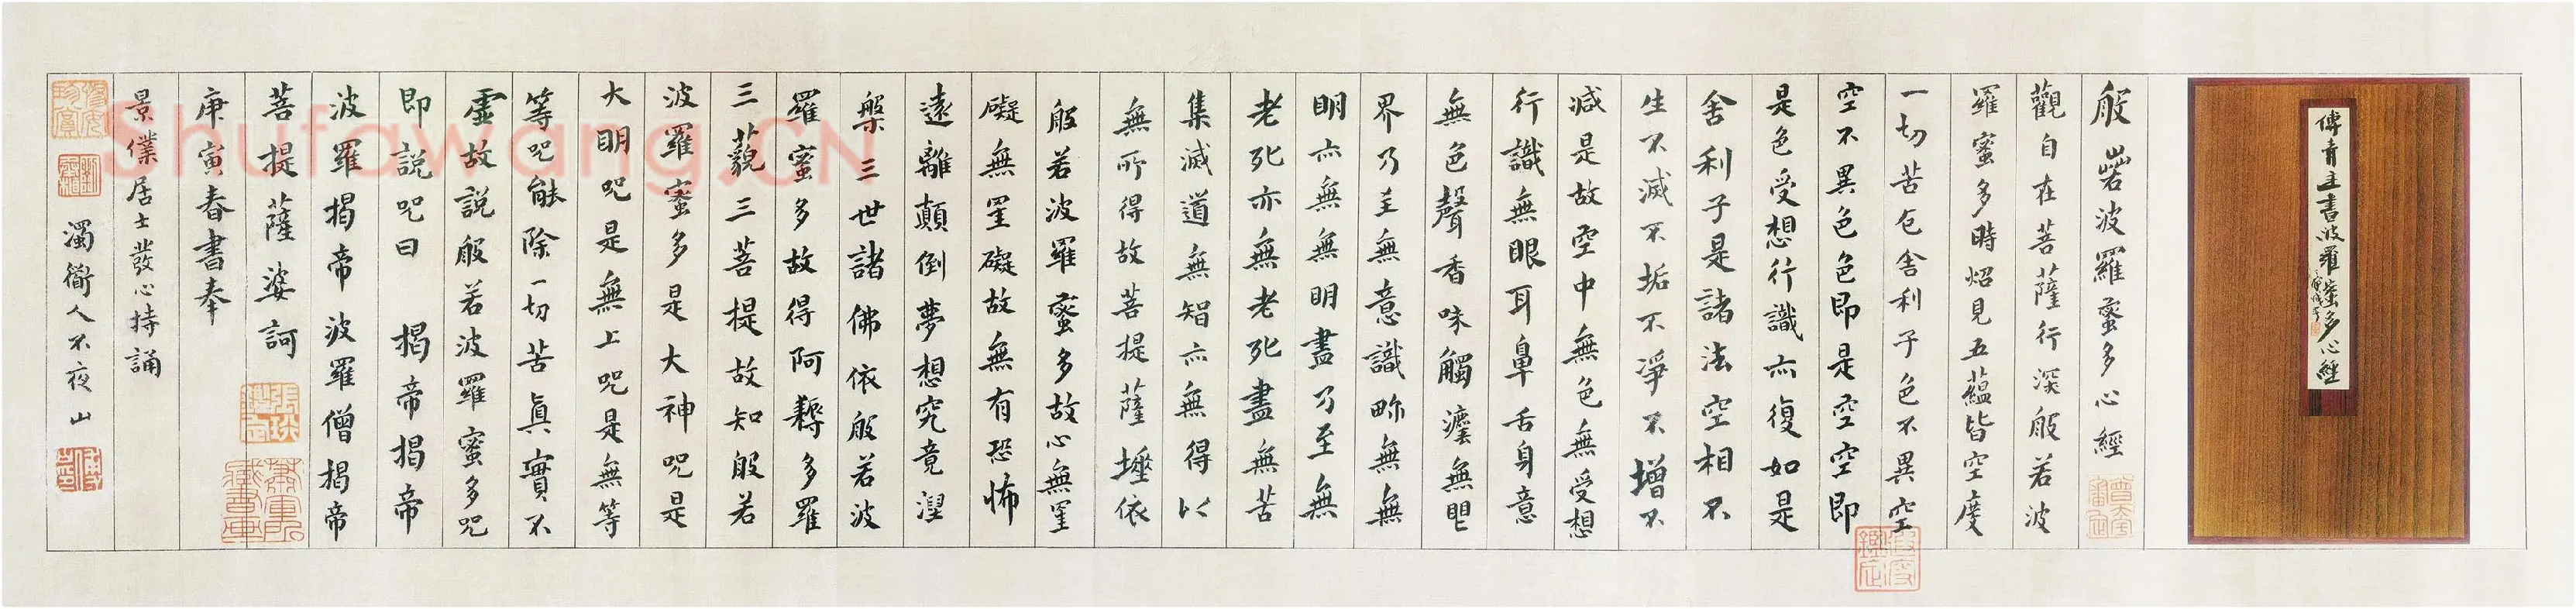 傅青主書波羅蜜多心經
般若波羅蜜多心經
觀自在菩薩行深般若波
羅蜜多時炤見五蘊皆空度
一切苦厄舍利子色不異空
空不異色色即是空空即
是色受想行識亦復如是
舍利子是諸法空相不
生不滅不垢不淨不增不
減是故空中無色無受想
行識無眼耳鼻舌身意
無色聲香味觸法無眼
界乃至無意識界無無
明亦無無明盡乃至無
老死亦無老死盡無苦
集滅道無智亦無得以
無所得故菩提薩埵依
般若波羅蜜多故心無罣
礙無罣礙故無有恐怖
遠離顛倒夢想究竟涅
槃三世諸佛依般若波
羅蜜多故得阿耨多羅
三藐三菩提故知般若
波羅蜜多是大神咒是
大明咒是無上咒是無等
等咒能除一切苦真實不
虛故說般若波羅蜜多咒
即說咒曰 揭帝揭帝
波羅揭帝波羅僧揭帝
菩提薩婆訶
庚寅春書奉
景僕居士發心持誦
濁衟人不夜山
Shufawang.CN